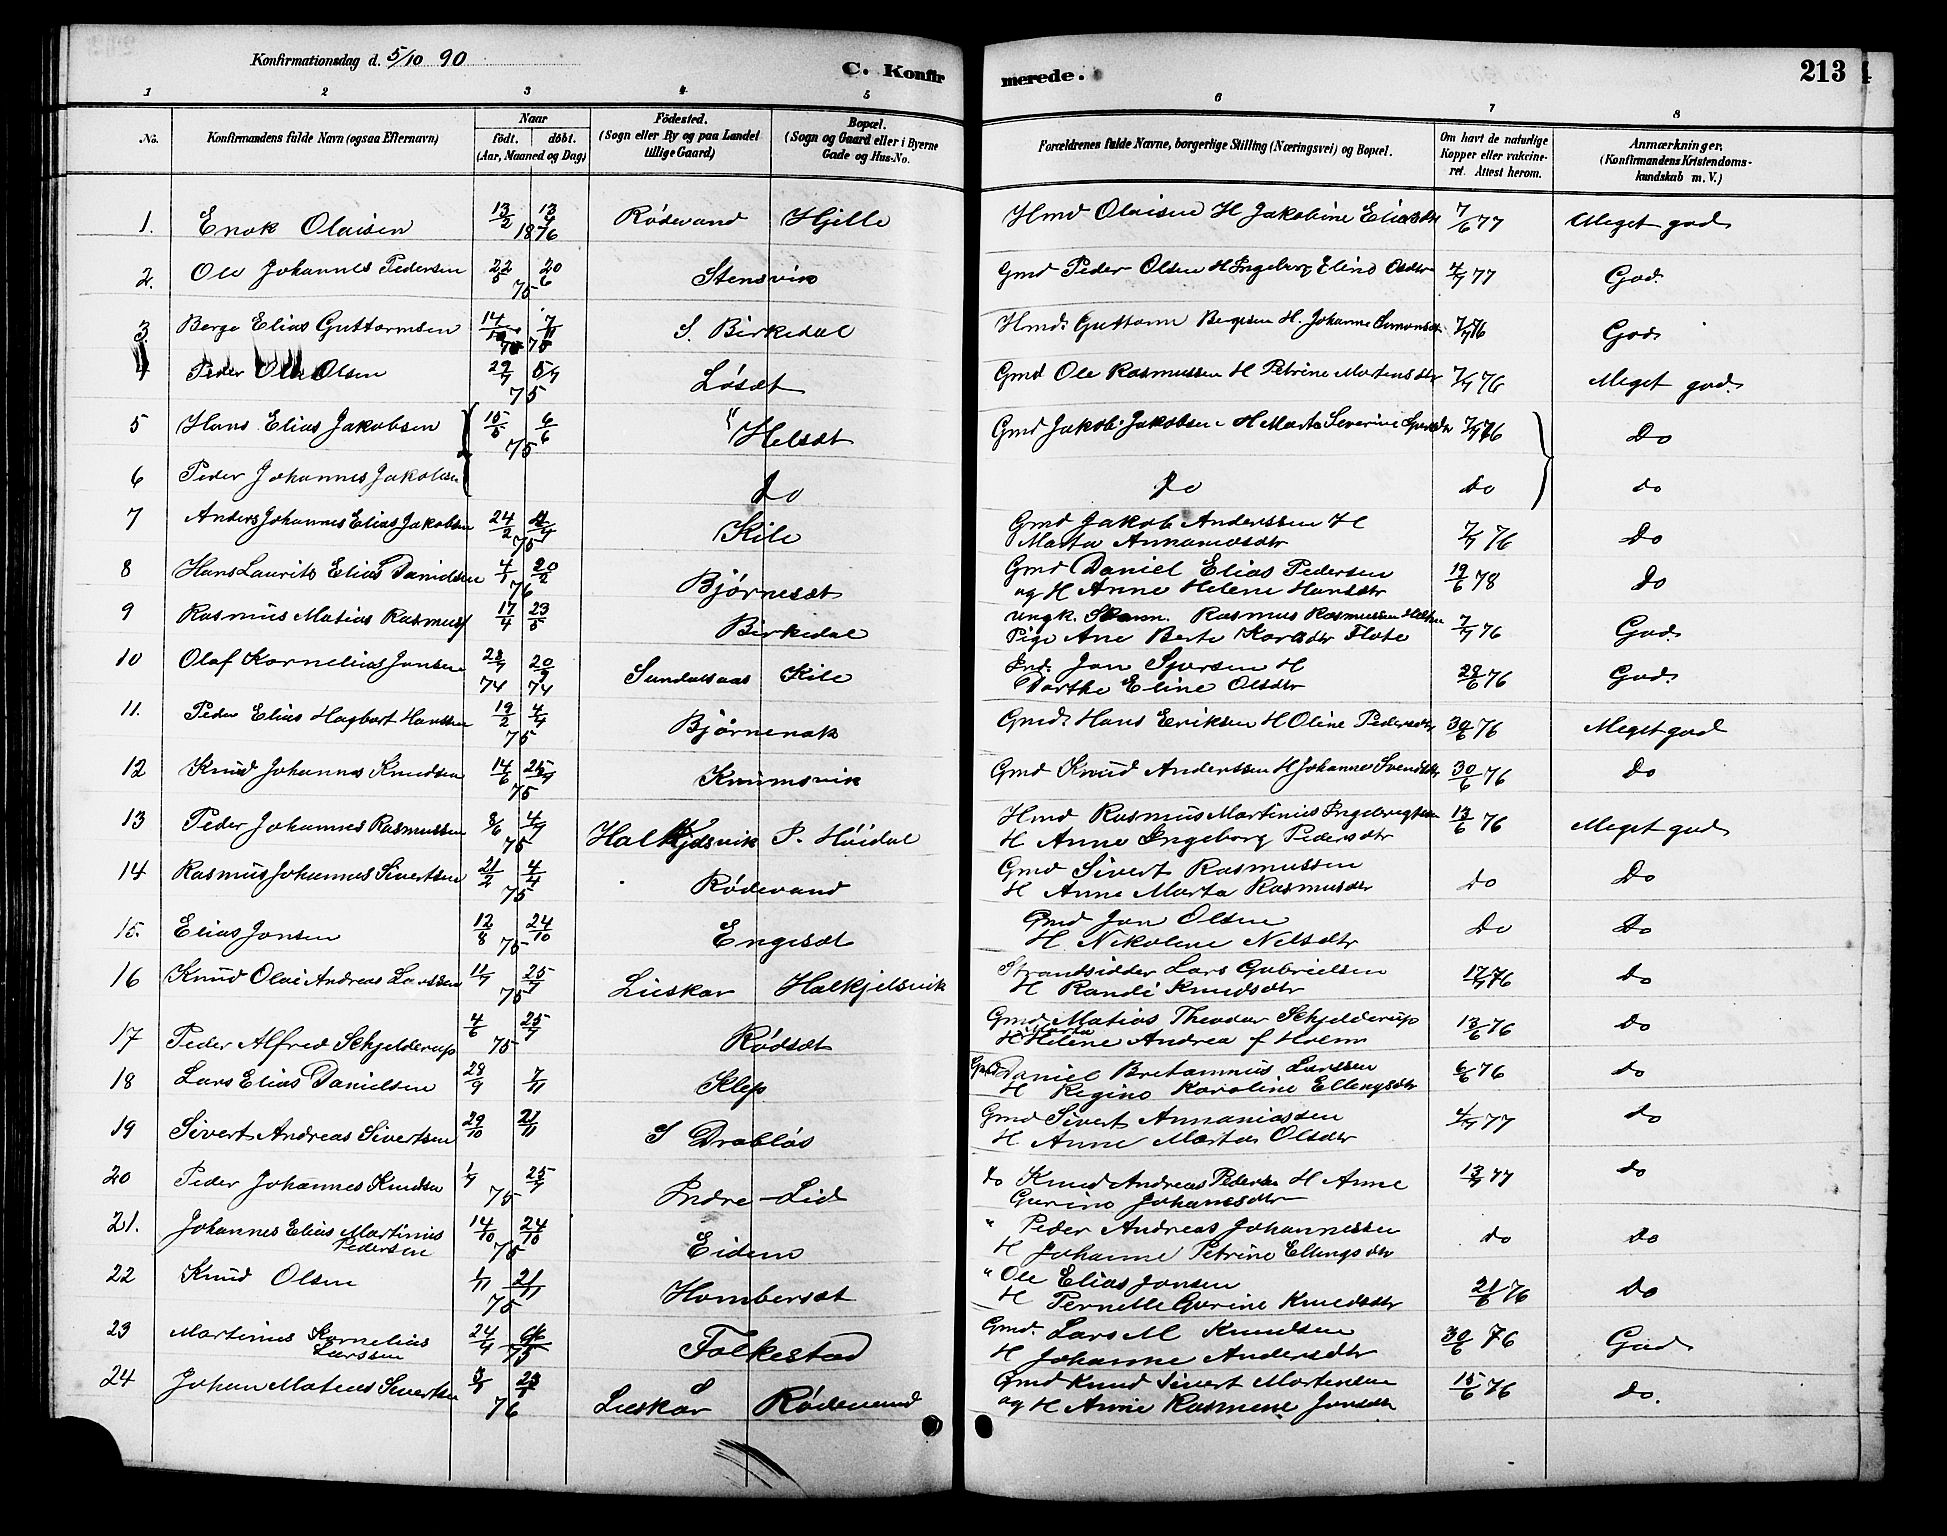 Konfirmationsdag d. 5/10 90
C. Konfir
merede.
213
1 2 3 4 5 6 7 8
No. Konfirmandens fulde Navn (ogsaa Efternavn) Naar født. døbt. (Aar, Maaned og Dag) Fødested. (Sogn eller By og paa Landet tillige Gaard) Bopæl. (Sogn og Gaard eller i Byerne Gade og Hus-No. Forældrenes fulde Navne, borgerlige Stilling (Næringsvei) og Bopæl. Om havt de naturlige Kopper eller vakcineret. Attest herom. Anmærkninger. (Konfirmandens Kristendomskundskab m. V.)
1. Enok Olaisen 13/2 13/4 1876 Rødevand Hjelle Hmd Olaisen H Jakobine Eliasdtr 7/6 77 Meget god
2. Ole Johannes Pedersen 22/5 20/6 75 Stensvik Gmd Peder Olsen H Ingeborg Elino Olsdtr 4/7 77 God.
3 Berge Elias Guttormsen 14/10 7/11 75 75 S. Birkedal Hmd. Guttorm Bergesen H. Johanne Simonsdtr 7/7 76 God
4 Peder Olsen 29/7 5/9 75 Løsæt Gmd Ole Rasmussen H Petrine Martensdtr 7/7 76 Meget god.
5 Hans Elias Jakobsen 15/5 6/6 75 " Helsæt Gmd Jakob Jakobsen H Marta Severine 7/7 76 Do
6 Peder Johannes Jakobsen do do do do
7 Anders Johannes Elias Jakobsen 24/2 4/4 75 Kile Gmd Jakob Anderssen H Marta Annaniasdtr 7/7 76 Do
8 Hans Laurits Elias Danielsen 4/1 20/2 76 Bjørnesæt Gmd Daniel Elias Pedersen og H Anne Helene Hansdtr 19/6 78 Do
9 Rasmus Matias Rasmuss 17/4 23/5 Birkedal Ungk. Rasmus Rasmussen Pige Ane Berte Flote 7/7 76 God.
10 Olaf Kornelius Jonsen 28/7 20/9 74 74 Sundalsaas Kile Ind. Jon Sjursen H Dorthe Eline Olsdtr 28/6 76 God.
11. Peder Elias Hagbart Hanssen 19/2 4/4 75 Bjørnenak Gmd. Hans Eriksen H Oline Pedersdtr 30/6 76 Meget god
12 Knud Johannes Knudsen 14/6 25/7 75 Krumsvik Gmd Knud Anderssen H Johanne Svendsdtr 30/6 76 Do
13 Peder Johannes Rasmussen 8/6 4/7 75 Halkjelsvik P. Høidal Hmd Rasmus Martinus Ingebrigtsen H Anne Ingeborg Pedersdtr 13/6 76 Meget god
14 Rasmus Johannes Sivertsen 21/2 4/4 75 Rødevand Gmd Sivert Rasmussen H Anne Marta Rasmusdtr do Do
15. Elias Jonsen 12/8 24/10 75 Engesæt Gmd Jon Olsen H. Nikoline Nelsdtr Do Do
16 Knud Olai Andreas Larssen 11/7 25/7 75 Lieskar Halkjelsvik Strandsidder Lars Gabrielsen H Randi Knudsdtr 17/7 76 do
17 Peder Alfred Schjelderup 4/6 25/7 75 Rødsæt Gmd Matias Theodor Schjelderup H Marta Helene Andrea f Holm 13/6 76 Do
18 Lars Elias Danielsen 28/9 7/11 Klep Gmd Daniel Bretannius Larssen H Regine Karoline Ellingsdtr 6/6 76 do
19 Sivert Andreas Sivertsen 29/10 21/11 S Drabløs Gmd Sivert Annaniassen H Anne Marta Olsdtr 4/7 77 do
20 Peder Johannes Knudsen 1/7 25/7 75 Indre-Lid do Knud Andreas Pedersen H Anne Gurine Johansdtr 13/7 77 do
21. Johannes Elias Martinus Pedersen 14/10 24/10 75 Eidem " Peder Andreas Johannessen H Johanne Petrine Ellingsdtr do Do
22 Knud Olsen 1/11 21/11 75 Hombersæt " Ole Elias Jonsen H Pernelle Gurine Knudsdtr 21/6 76 Do
23 Martinus Kornelius Larssen 24/4 75 Folkestad Gmd. Lars M Knudsen H Johanne Andersdtr 30/6 76 God
24 Johan Matias Sivertsen 3/1 76 Lieskar Rødevand Gmd Knud Sivert Martensen og H Anne Rasmine Jonsdtr 15/6 76 do.